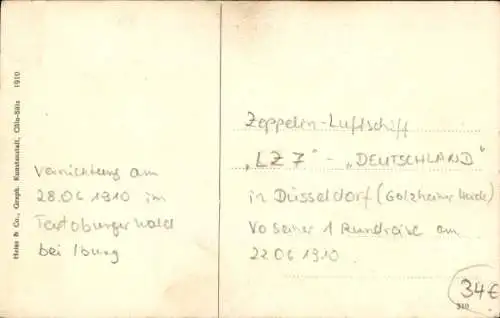 Heiss & Co., Graph. Kunstanstalt, Cöln-Sülz 1910
Vernichtung am
28.06 1910 im
Teutoburger Wald
bei Iburg
Zeppelin-Luftschiff
„LZ 7" - „DEUTSCHLAND"
in Düsseldorf (Golzheimer Heide)
Vo seiner 1 Rundreise am
22 06 1910
34€
310